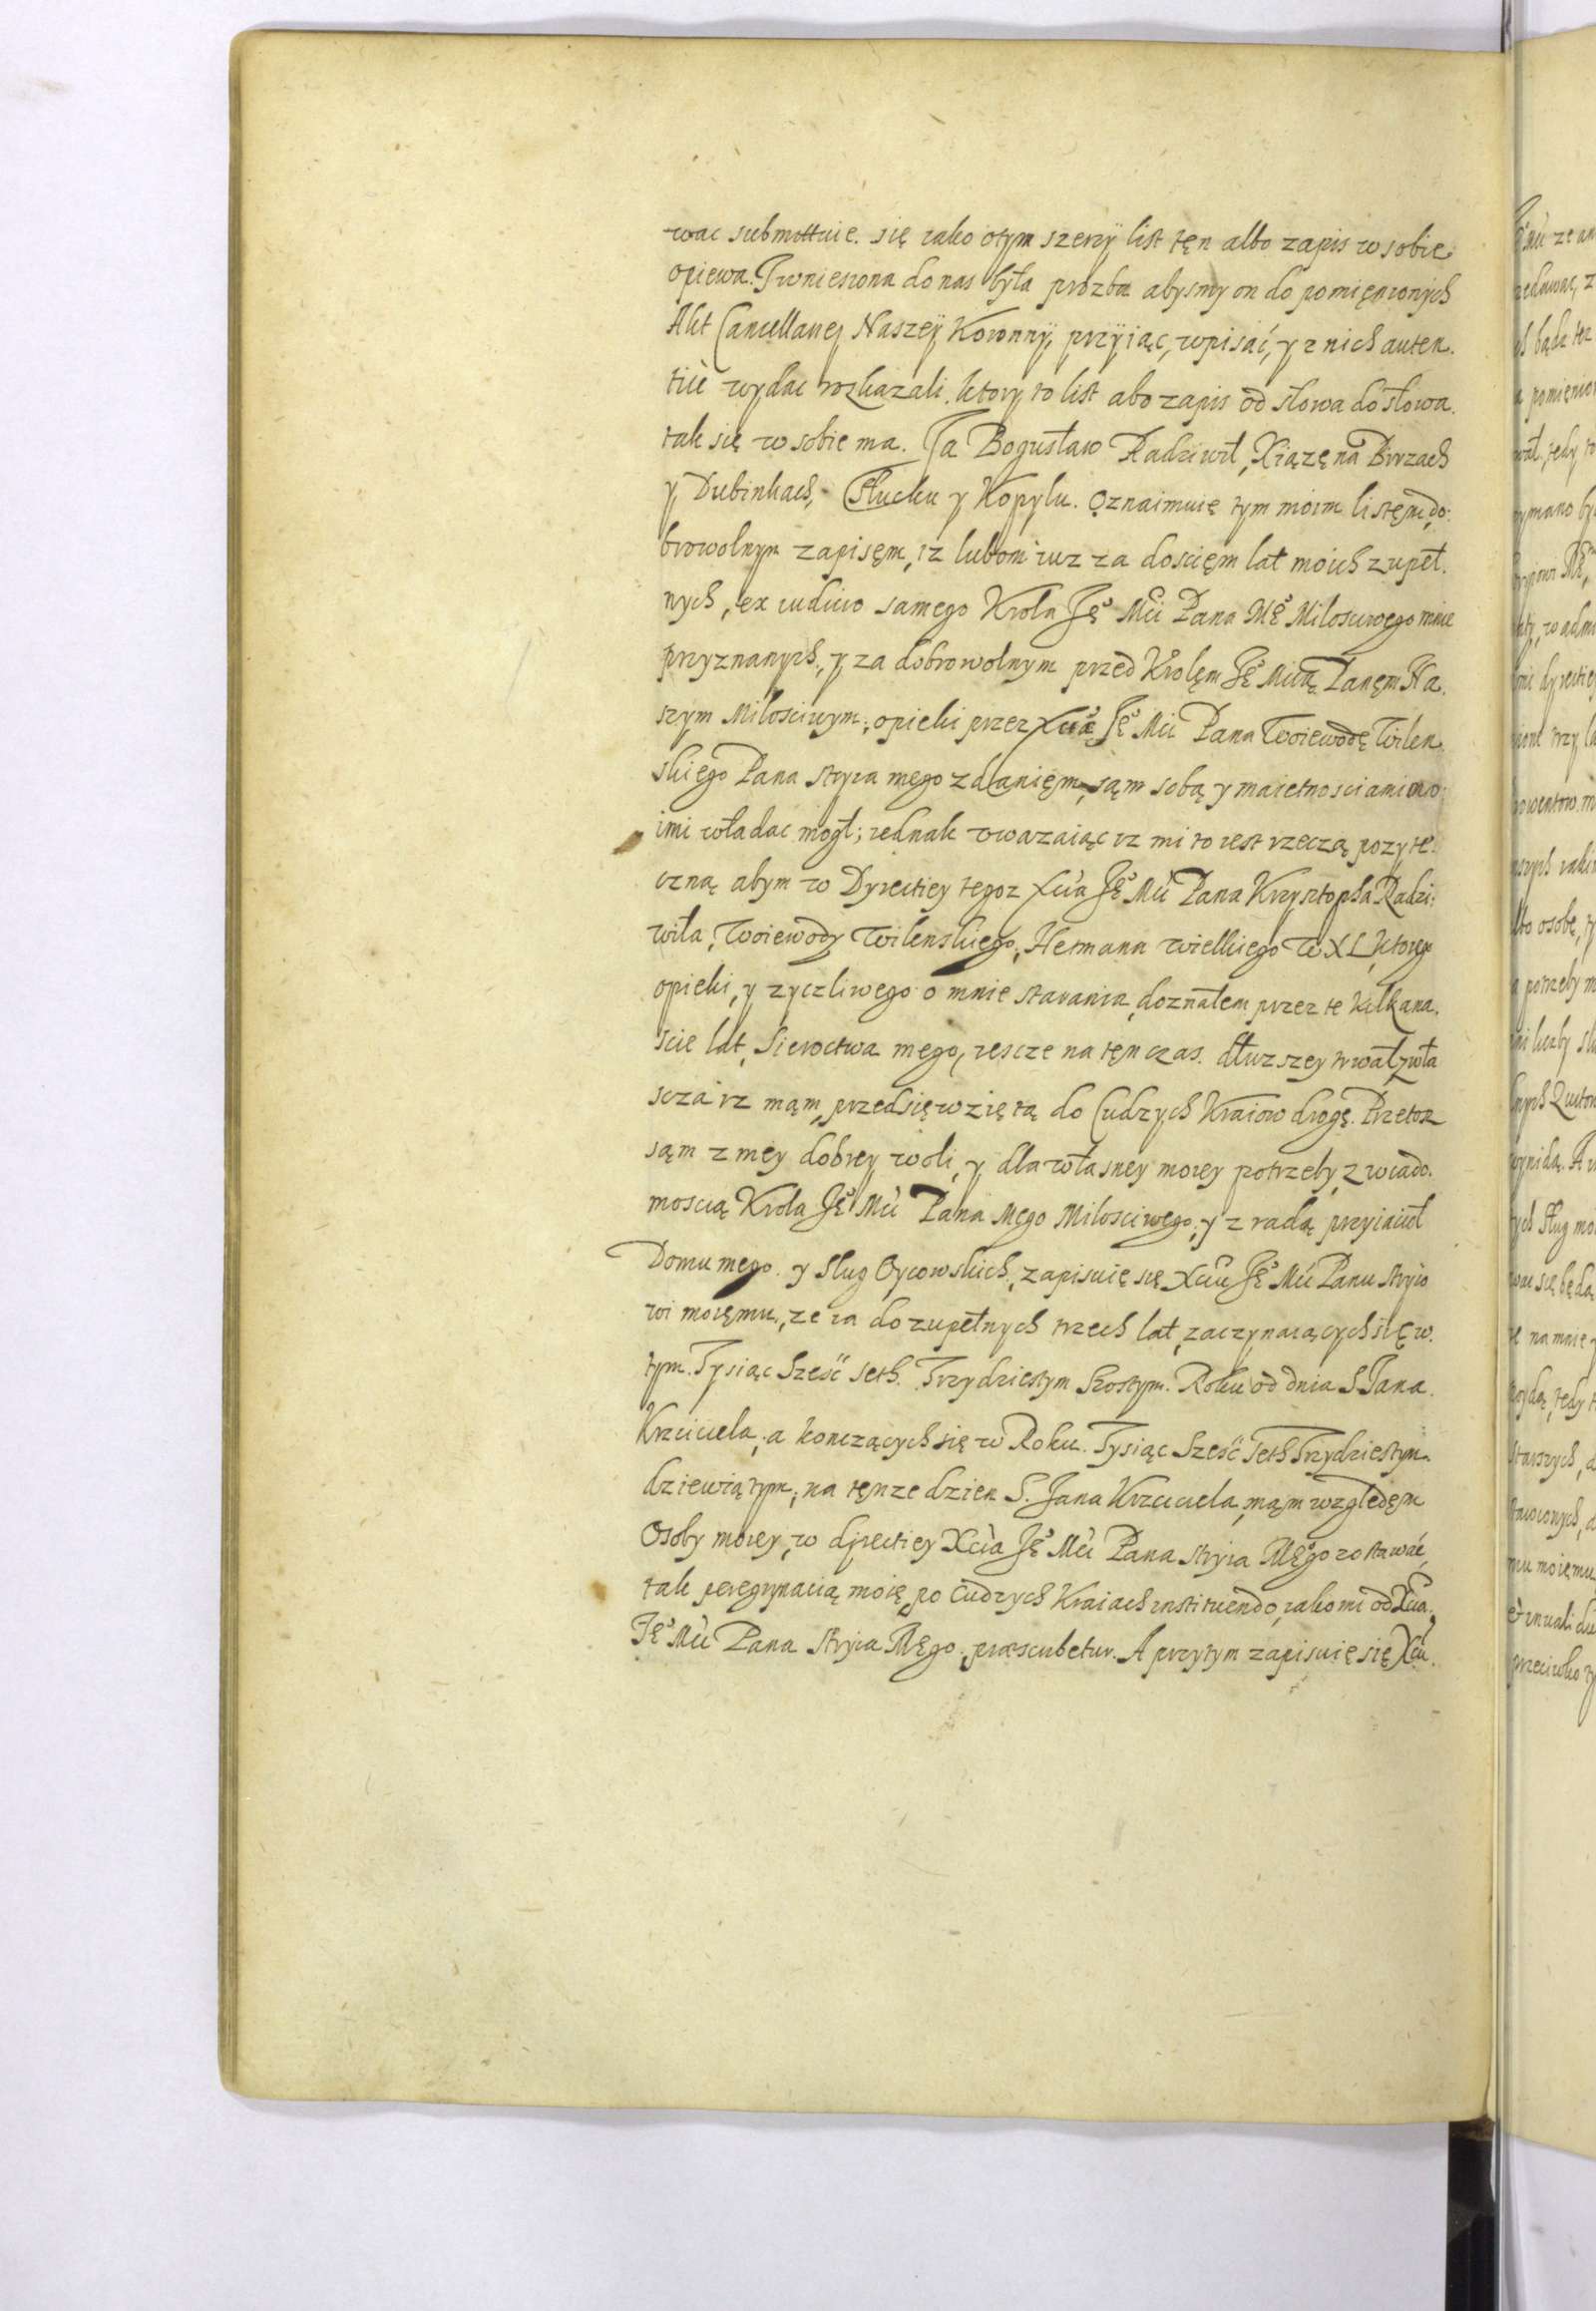 wac submittuie. się iako otym szerzÿ list tęn albo zapis w sobie
opiewa. J wniesiona do nas była prozba abysmy on do pomięnionych
Akt Cancellarieÿ Naszeÿ Koronnÿ, przÿiąc, wpisać, y z nich auten.
ticè wydac rozkazali. ktory to list abo zapis od słowa do słowa.
tak się w sobie ma. Ja Bogusław Radziwił, Xiążę na Birzach
y Dubinkach, Słucku y Kopylu. Oznaimuię tym moim listęm, do:
browolnym zapisęm, iz lubom iuz za doscięm lat moich zupeł.
nych, ex iudicio samego Krola Jęo Mci Pana Męo Milosciwego mnie
przyznanych, y za dobrowolnym przed Krolęm Jęo Mcią Panęm Na.
szym Milosciwym, opieki przez Xcia Jęo Mci Pana Woiewodę Wilen.
skiego Pana stryia mego zdanięm, sąm sobą y maietnosciami mo:
imi władac mogł; iednak uwazaiąc iz mi to iest rzeczą pozyte:
czną abym w Dyrectiey tegoz Xcia Jęo Mci Pana Krzysztopha Radzi:
wiła, Woiewody Wilenskiego, Hetmana wielkiego W X L, ktorego
opieki, y zyczliwego o mnie starania, doznałem przez te kilkana.
scie lat, Sieroctwa mego, iescze na tęn czas. dłuzszey trwał, zwła
scza iz mąm, przedsięwziętą do Cudzych Kraiow drogę. Przetoz
sąm z mey dobrey woli, y dla własney moiey potrzeby, z wiado.
moscią Krola Jęo Mci Pana Mego Milosciwego, y z radą przyiacioł
Domu mego. y Sług Oycowskich, zapisuię się Xciu Jęo Mci Panu stryio
wi moięmu, ze ia do zupełnych trzech lat, zaczynaiących się w.
tym. Tysiąc Sześć seth. Trzydziestym Szostym. Roku od dnia S Jana.
Krzciciela, a konczących się w Roku. Tysiąc Sześć Seth Trzydziestym
dziewiątym, na tęnze dzien S. Jana Krzciciela, mąm względęm
Osoby moiey, w dyrectiey Xcia Jęo Mci Pana stryia Mego zostawać,
tak peregrynacią moię, po Cudzych Kraiach instituendo, iako mi od Xcia.
Jęo Mci Pana stryia Mego. praescribetur. A przytym zapisuię się Xciu.